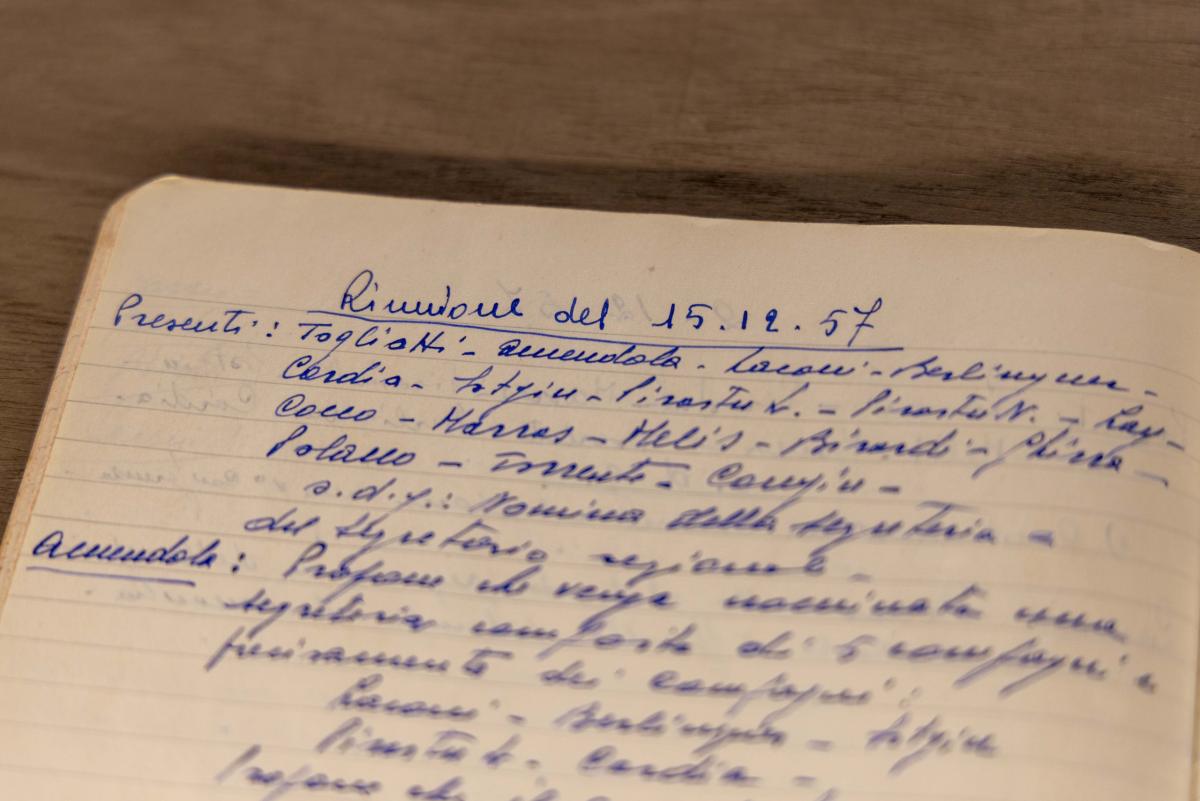 Riunione del 15.12.57
Presenti: Togliatti - Amendola - Laconi - Berlinguer -
Cardia - Sotgiu - Pirastu L. - Pirastu N. - Lay -
Cocco - Marras - Melis - Birardi - Ghirra -
Polano - Torrente - Congiu -
o.d.g.: Nomina della segreteria e
del segretario regionale -
Amendola: Propone che venga nominata una
segreteria composta di 5 compagni e
precisamente dei compagni:
Laconi - Berlinguer - Sotgiu
Pirastu L. - Cardia -
Propone che il